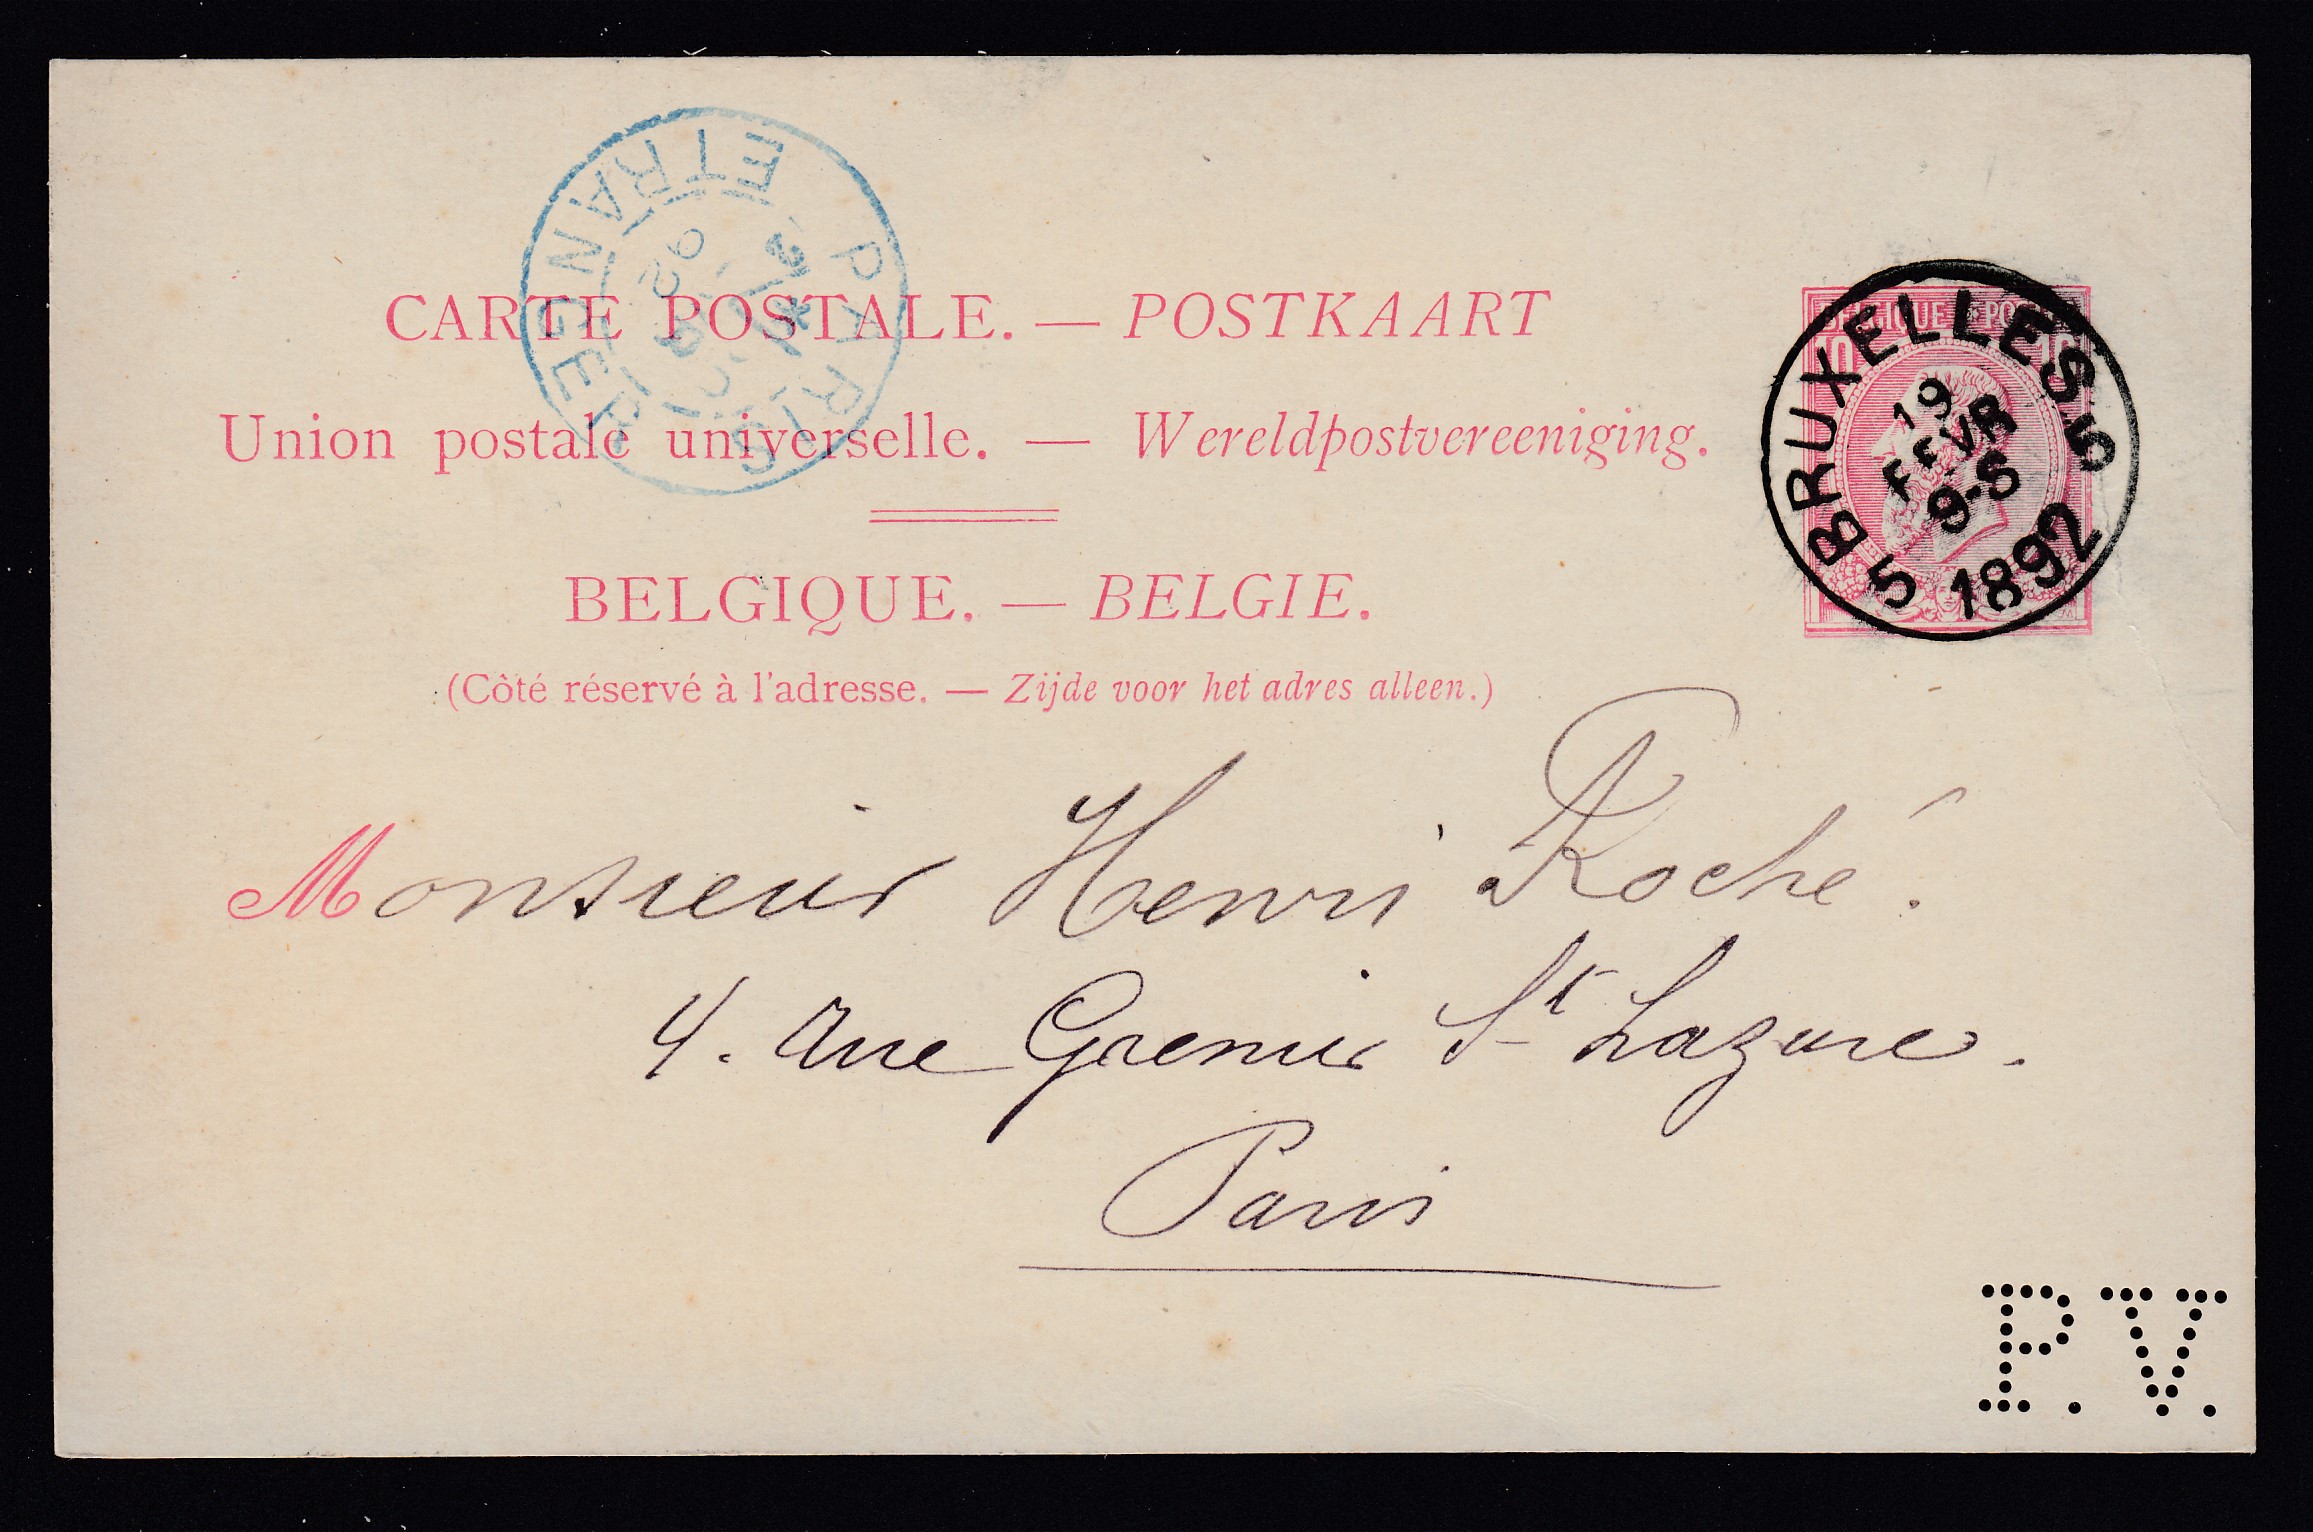 CARTE POSTALE. — POSTKAART
Union postale universelle. — Wereldpostvereeniging.
BELGIQUE. — BELGIE.
(Côté réservé à l'adresse. — Zijde voor het adres alleen.)
PARIS ETRANGER
92
BELGIQUE POSTES
10 10
BRUXELLES 5
19
FEVR
9-S
5 1892
Monsieur Henri Roché.
4. Rue Grenier St Lazare.
Paris
P.V.